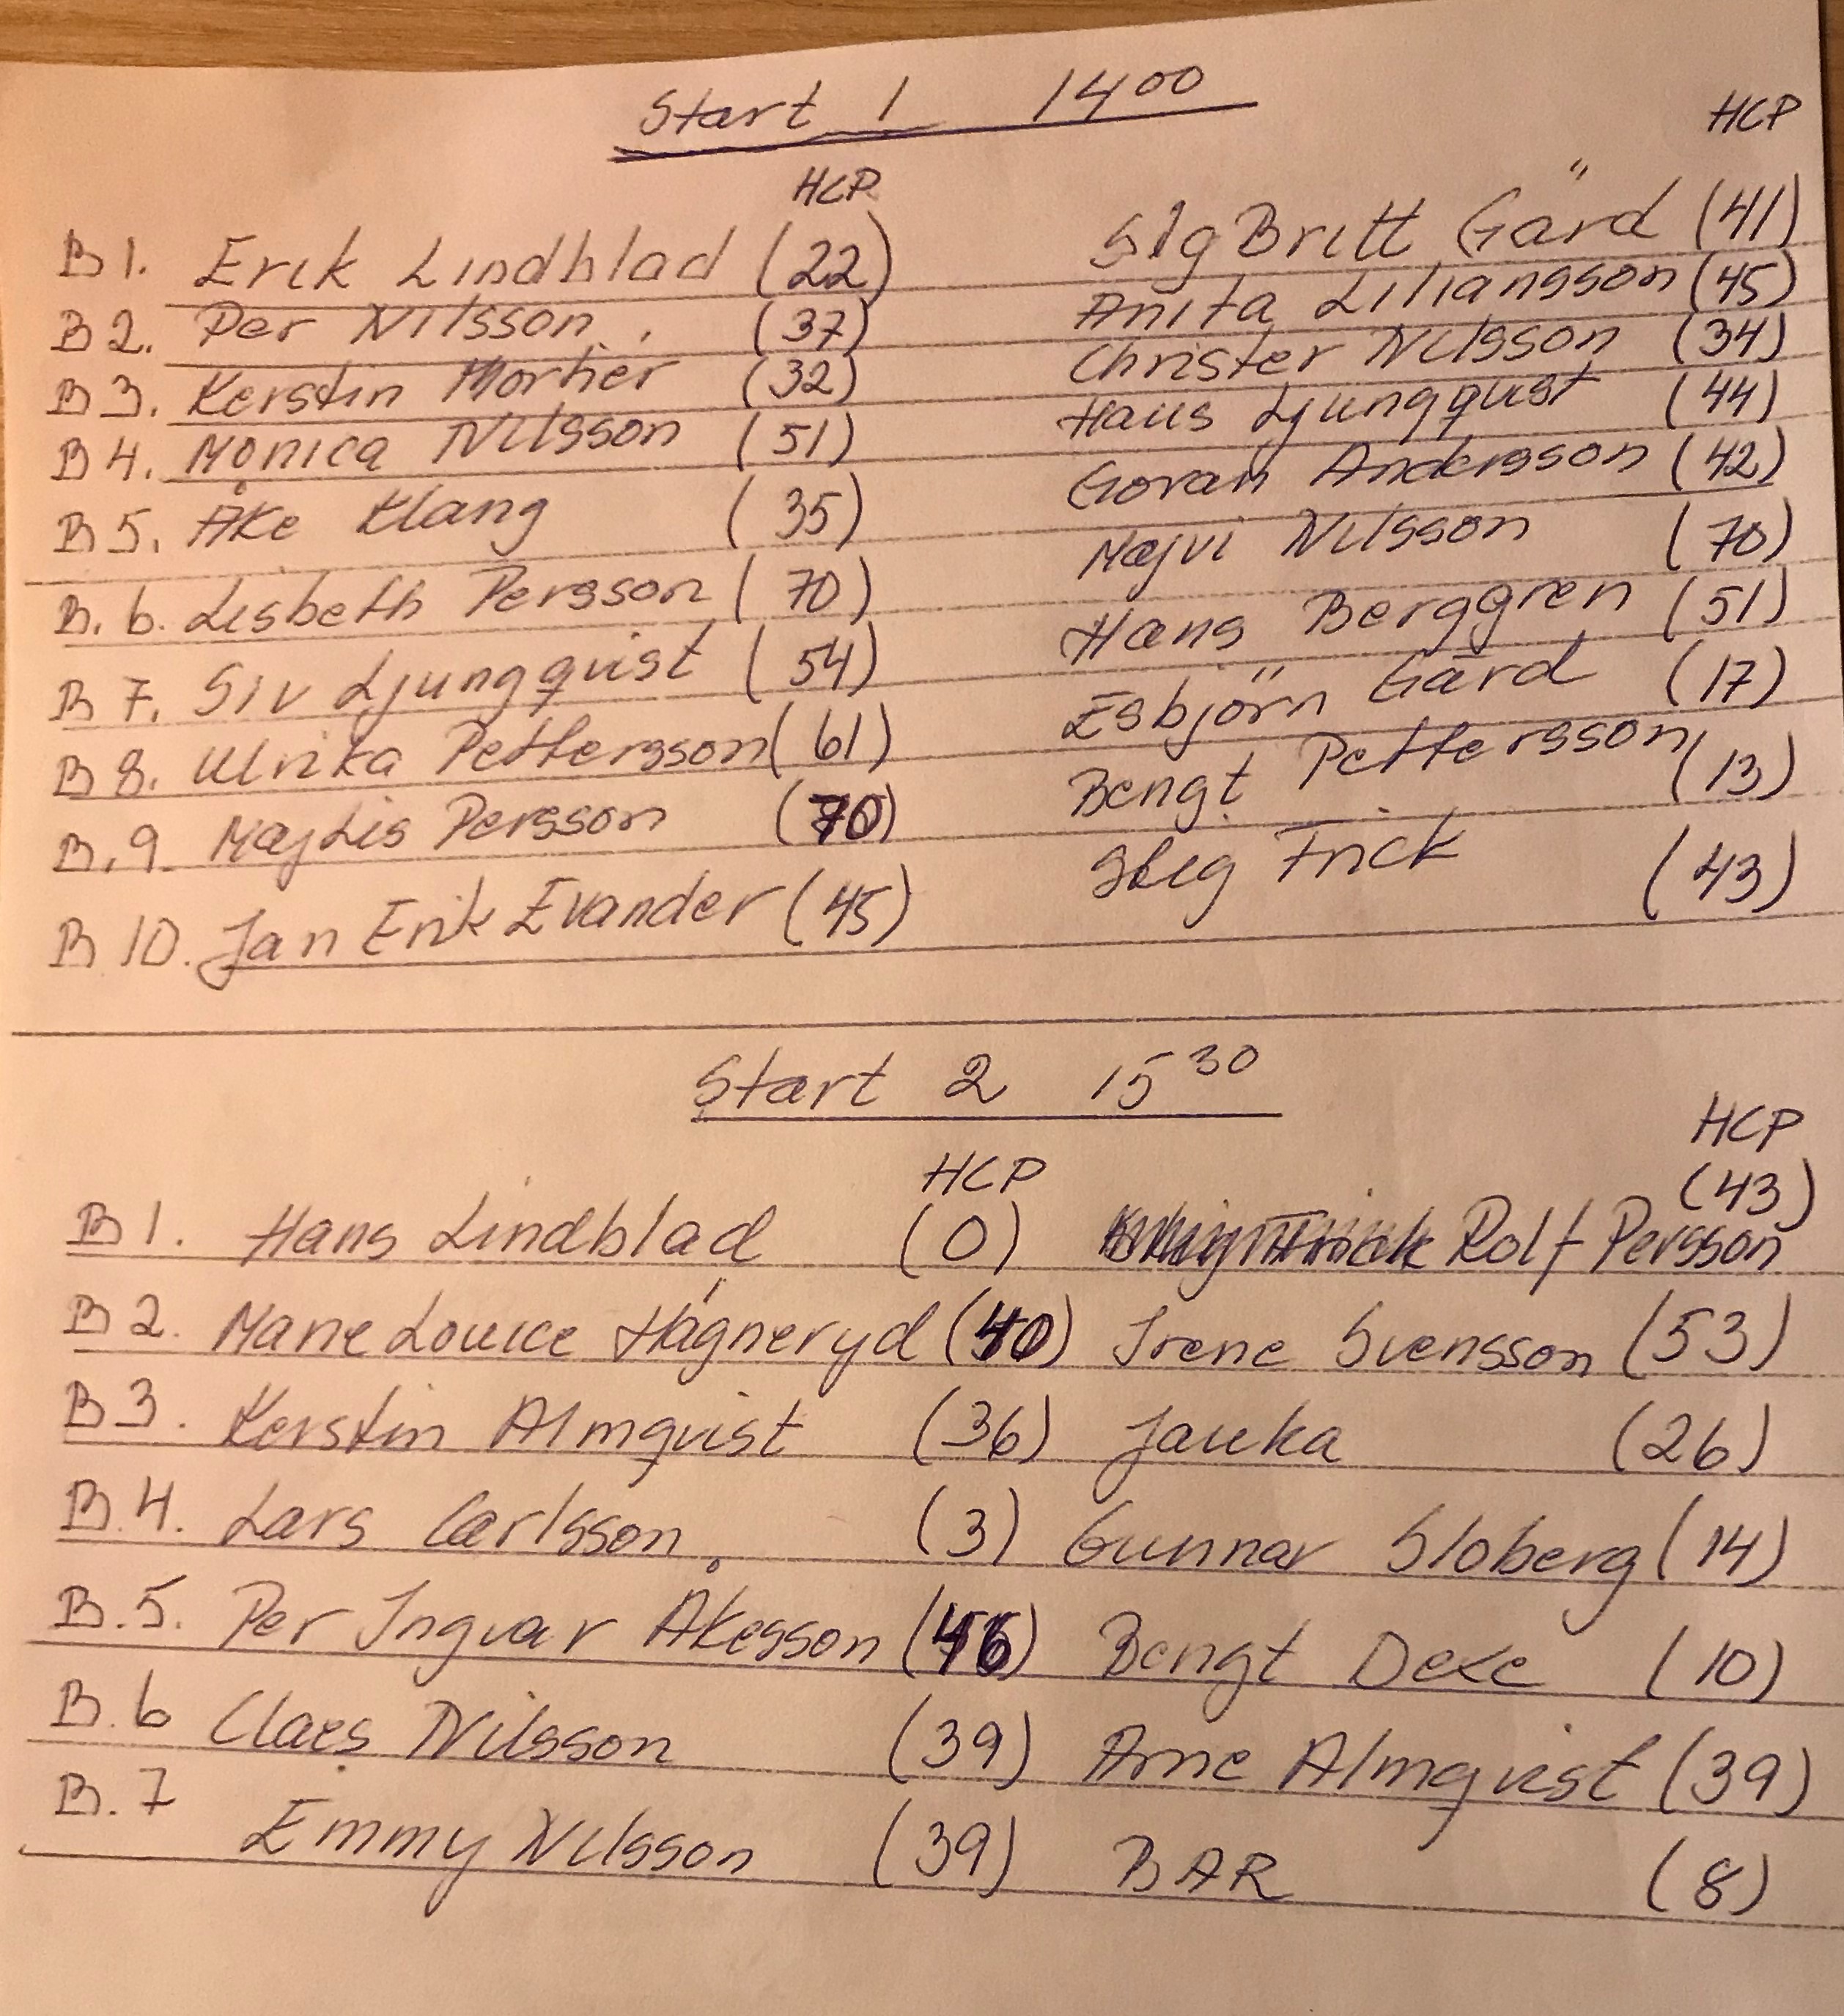 Start 1 1400
HCP HCP
B 1. Erik Lindblad (22) SigBritt Gärd (41)
B 2. Per Nilsson (37) Anita Liliansson (45)
B 3. Kerstin Mortier (32) Christer Nilsson (34)
B 4. Monica Nilsson (51) Hans Ljungqquist (44)
B 5. Åke Klang (35) Goran Andersson (42)
B. 6. Lisbeth Persson (70) Majvi Nilsson (70)
B 7. Siv Ljungqquist (54) Hans Berggren (51)
B 8. Ulrika Pettersson (61) Esbjörn Gärd (17)
B. 9. MajLis Persson (70) Bengt Pettersson (13)
B 10. Jan Erik Evander (45) Frick (43)
Start 2 15 30
HCP HCP
B 1. Hans Lindblad (0) Rolf Persson (43)
B 2. Marie Louice Hägneryd (40) Irene Svensson (53)
B 3. Kerstin Almqvist (36) (26)
B. 4. Lars Carlsson (3) Gunnar Sloberg (14)
B. 5. Per Ingvar Åkesson (46) Bengt (10)
B. 6 Claes Nilsson (39) Arne Almqvist (39)
B. 7 Emmy Nilsson (39) BAR (8)